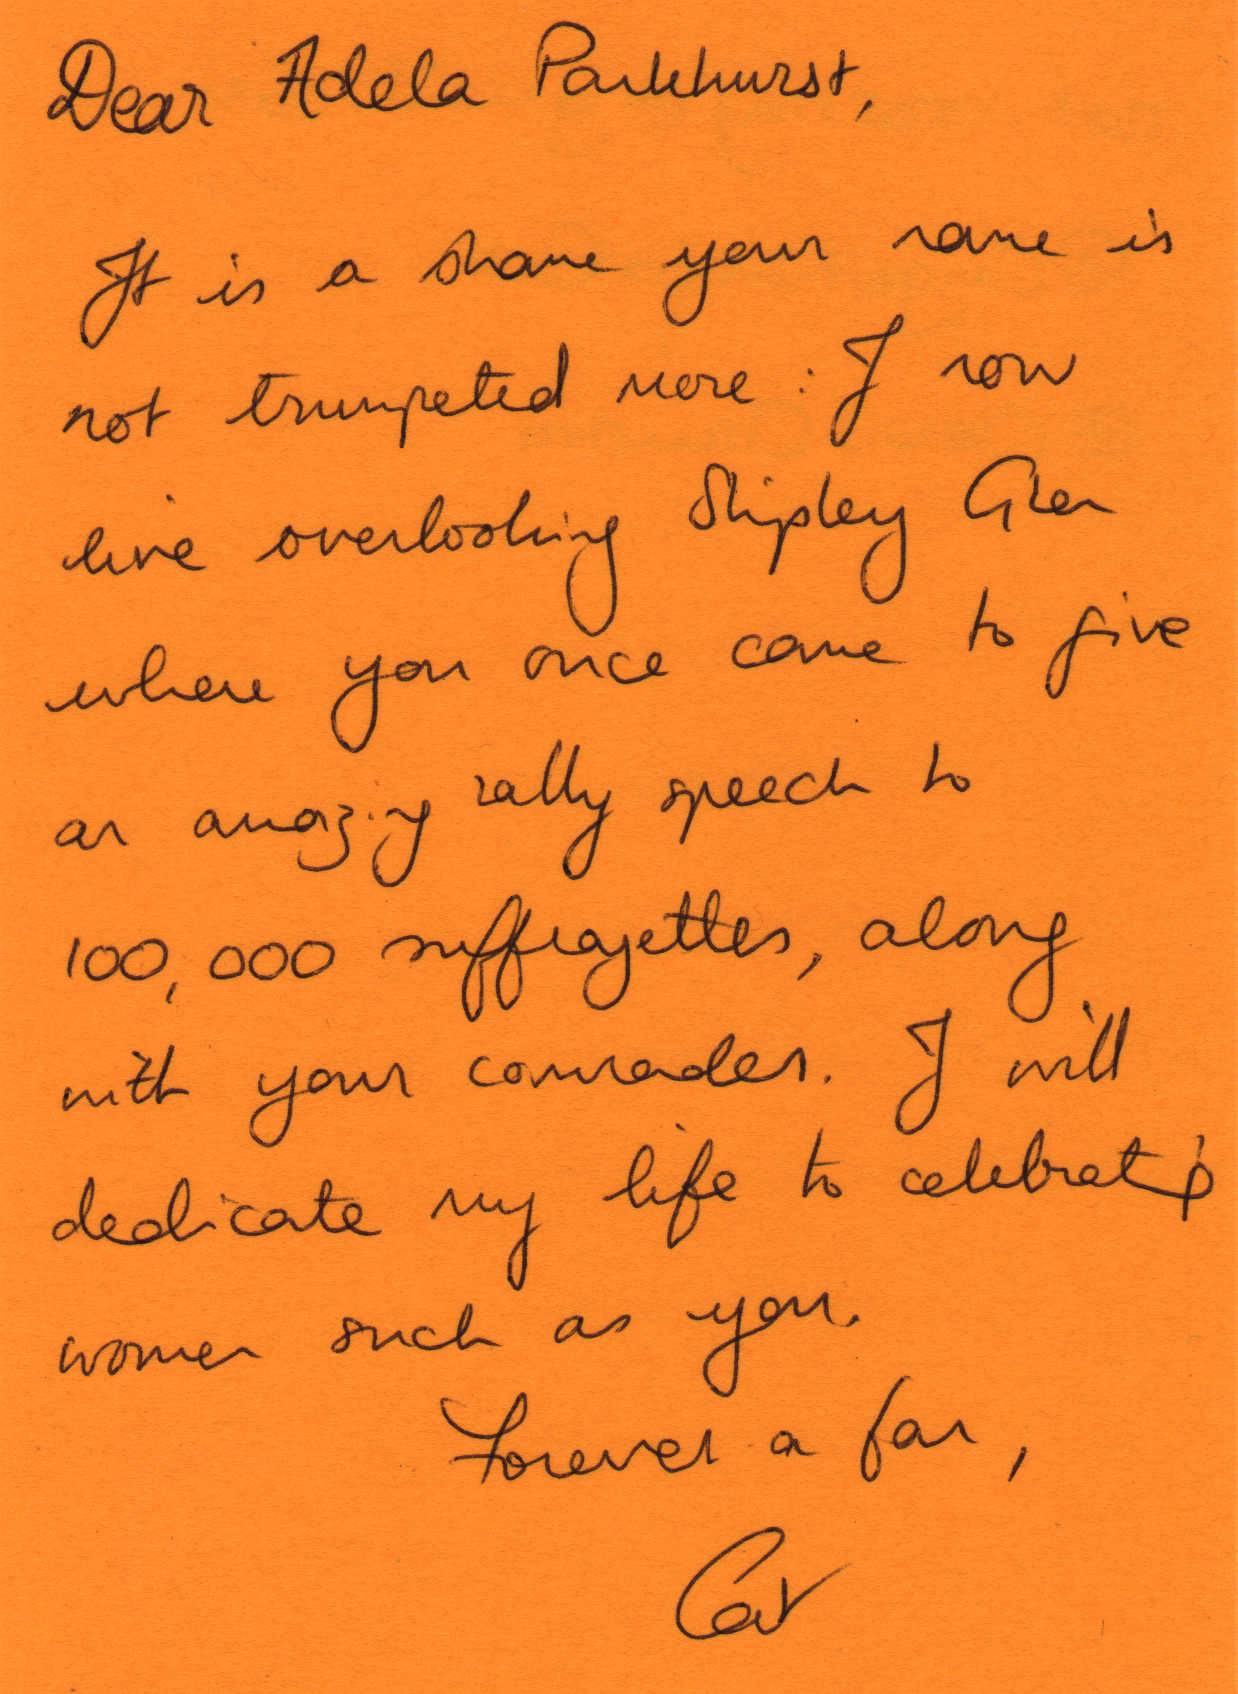 Dear Adela Pankhurst,
It is a shame your name is
not trumpeted more : I now
live overlooking Shipley Glen
where you once came to give
an amazing rally speech to
100,000 suffragettes, along
with your comrades. I will
dedicate my life to celebrating
women such as you.
Forever a fan,
Cat